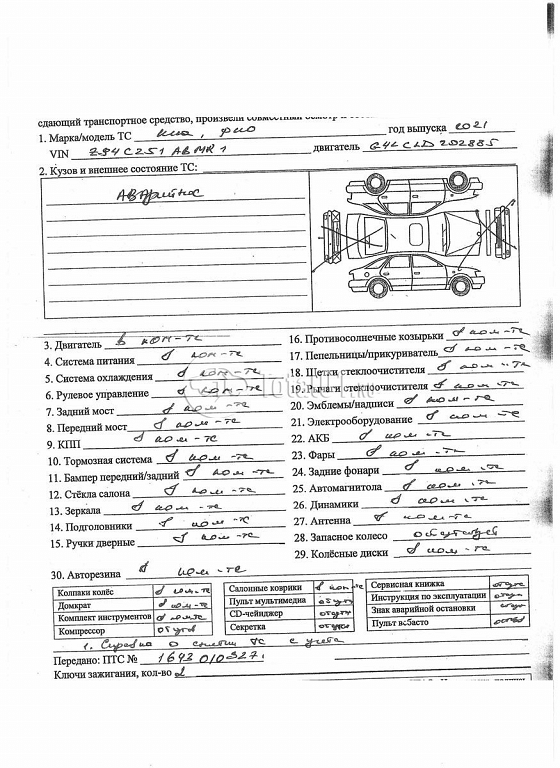 сдающий транспортное средство, произвели совместный осмотр
1. Марка/модель ТС киа, рио год выпуска 2021
VIN Z94C251ABMR1 двигатель G4LCLD292885
2. Кузов и внешнее состояние ТС:
Аварийное
3. Двигатель в ком-те
4. Система питания в ком-те
5. Система охлаждения в ком-те
6. Рулевое управление в ком-те
7. Задний мост в ком-те
8. Передний мост в ком-те
9. КПП в ком-те
10. Тормозная система в ком-те
11. Бампер передний/задний в ком-те
12. Стёкла салона в ком-те
13. Зеркала в ком-те
14. Подголовники в ком-те
15. Ручки дверные в ком-те
16. Противосолнечные козырьки в ком-те
17. Пепельницы/прикуриватель в ком-те
18. Щетки стеклоочистителя в ком-те
19. Рычаги стеклоочистителя в ком-те
20. Эмблемы/надписи в ком-те
21. Электрооборудование в ком-те
22. АКБ в ком-те
23. Фары в ком-те
24. Задние фонари в ком-те
25. Автомагнитола в ком-те
26. Динамики в ком-те
27. Антенна в ком-те
28. Запасное колесо отсутствует
29. Колёсные диски в ком-те
30. Авторезина в ком-те
Колпаки колёс в ком-те
Домкрат в ком-те
Комплект инструментов в ком-те
Компрессор отсутв
Салонные коврики в ком-те
Пульт мультимедиа отсутв
CD-чейнджер отсутв
Секретка отсутв
Сервисная книжка отсутв
Инструкция по эксплуатации отсутв
Знак аварийной остановки отсутв
Пульт вебасто отсутв
1. Справка о снятии ТС с учета
Передано: ПТС № 1643010327.
Ключи зажигания, кол-во 2